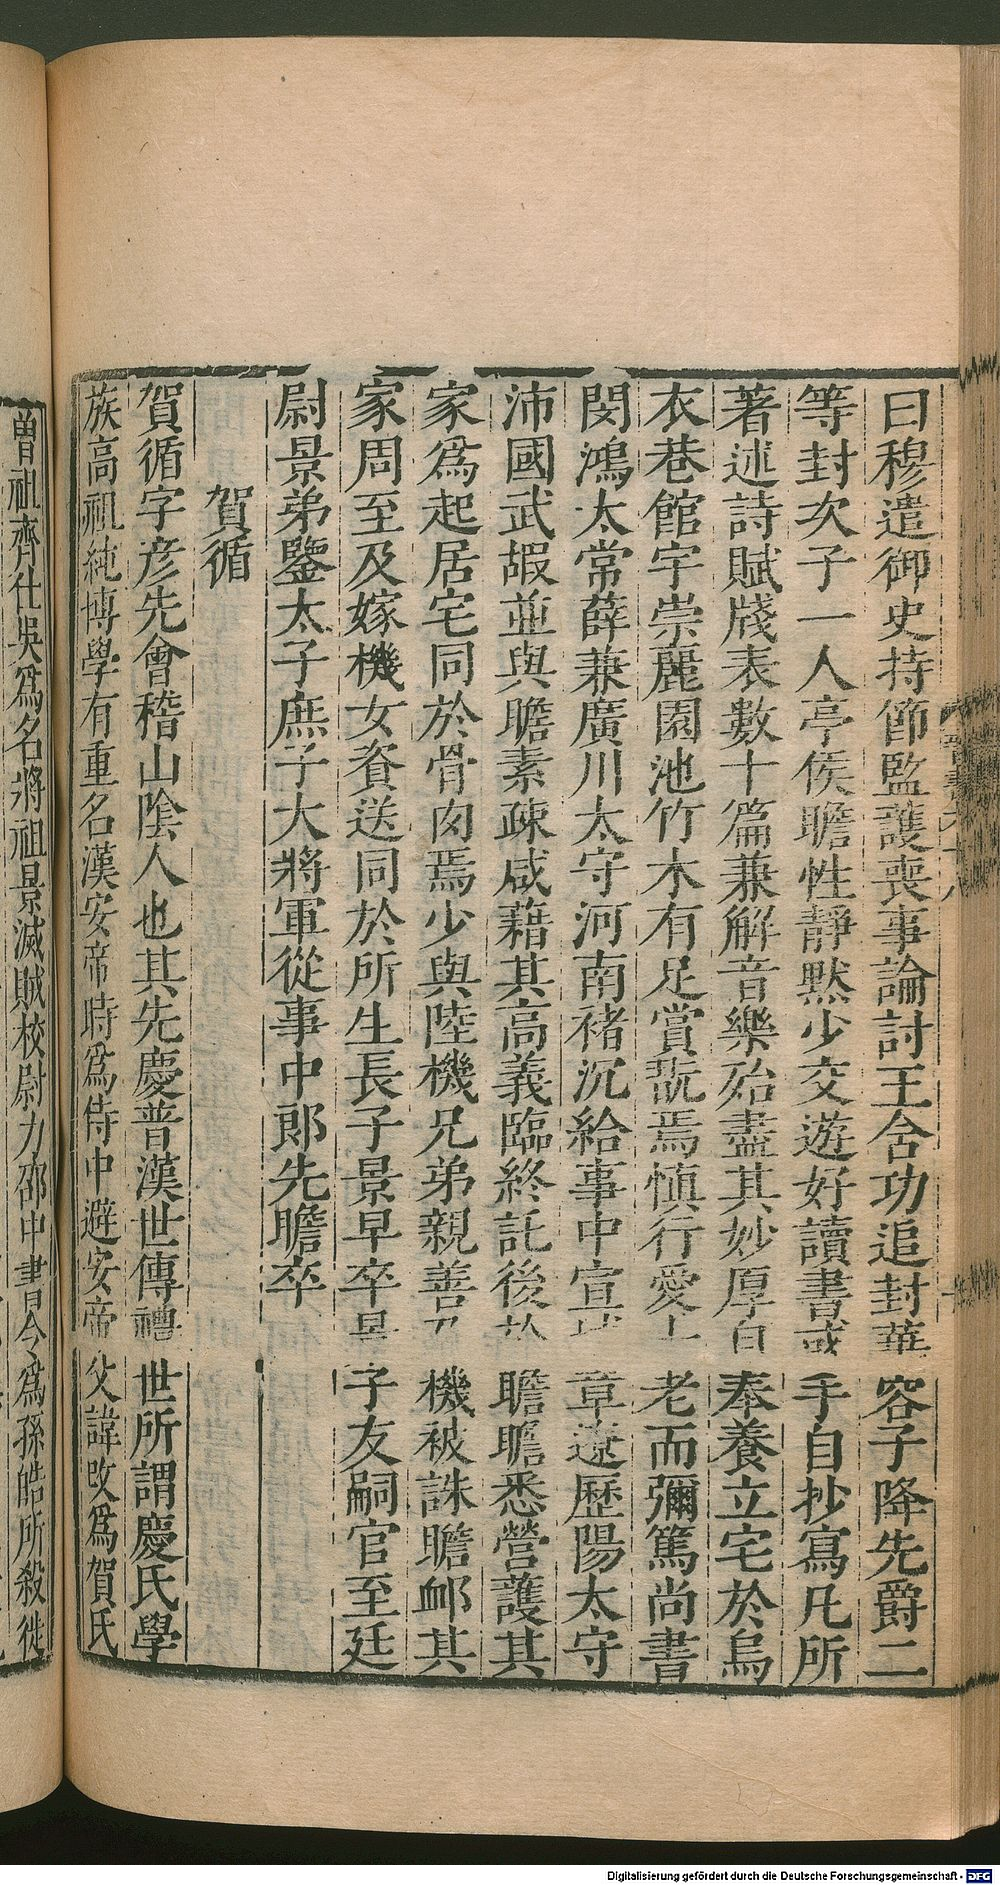 曰穆遣御史持節監護喪事論討王含功追封華容子降先爵二
等封次子一人亭侯瞻性靜默少交遊好讀書或手自抄寫凡所
著述詩賦牋表數十篇兼解音樂殆盡其妙厚自奉養立宅於烏
衣巷館宇崇麗園池竹木有足賞翫焉慎行愛士老而彌篤尚書
閔鴻太常薛兼廣川太守河南禇沉給事中宣城章遼歷陽太守
沛國武嘏並與瞻素疎咸藉其高義臨終託後於瞻瞻悉營護其
家爲起居宅同於骨肉焉少與陸機兄弟親善及機被誅瞻衈其
家周至及嫁機女資送同於所生長子景早卒景子友嗣官至廷
尉景弟鑒太子庶子大將軍從事中郎先瞻卒
賀循
賀循字彥先會稽山陰人也其先慶普漢世傳禮世所謂慶氏學
族高祖純博學有重名漢安帝時爲侍中避安帝父諱改爲賀氏
曾祖齊仕吳爲名將祖景滅賊校尉力邵中書令爲孫皓所殺徙
晉書
Digitalisierung gefördert durch die Deutsche Forschungsgemeinschaft - DFG